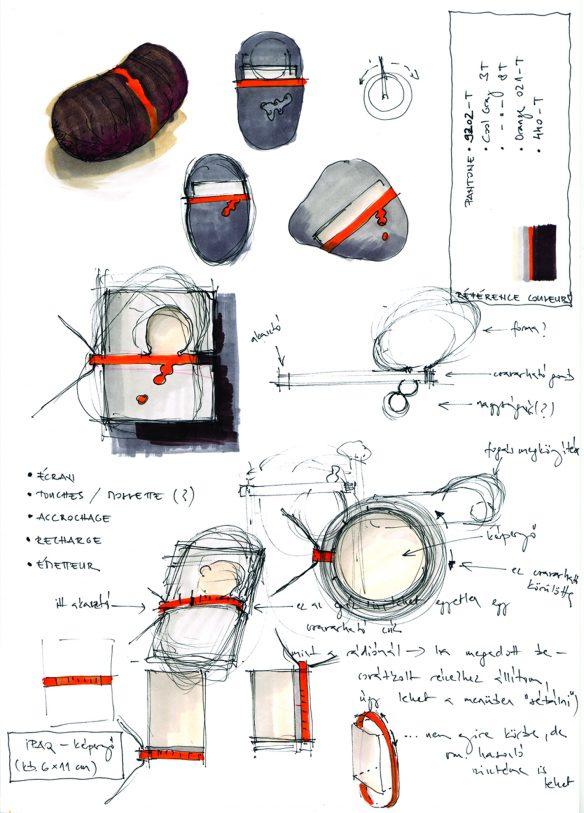 PANTONE • 9202-T
• Cool Gray 3T
• - " - 8T
• Orange 021-T
• 440-T
RÉFÉRENCE COULEURS
akasztó
forma?
csavarható pont
nagyságú(?)
• ÉCRAN
• TOUCHES / MOLETTE (?)
• ACCROCHAGE
• RECHARGE
• ÉMETTEUR
fogás megközelítés
képernyő
ez csavarható
körülötte
itt akasztó
ez az egyik lehet egyetlen egy
csavarható csík
mint a rádiónál → ha megadott be-
osztáshoz állítom,
úgy lehet a menüben "sétálni")
... nem egész körbe, de
hasonló
is
lehet
iPAQ - képernyő
(kb. 6 × 11 cm)